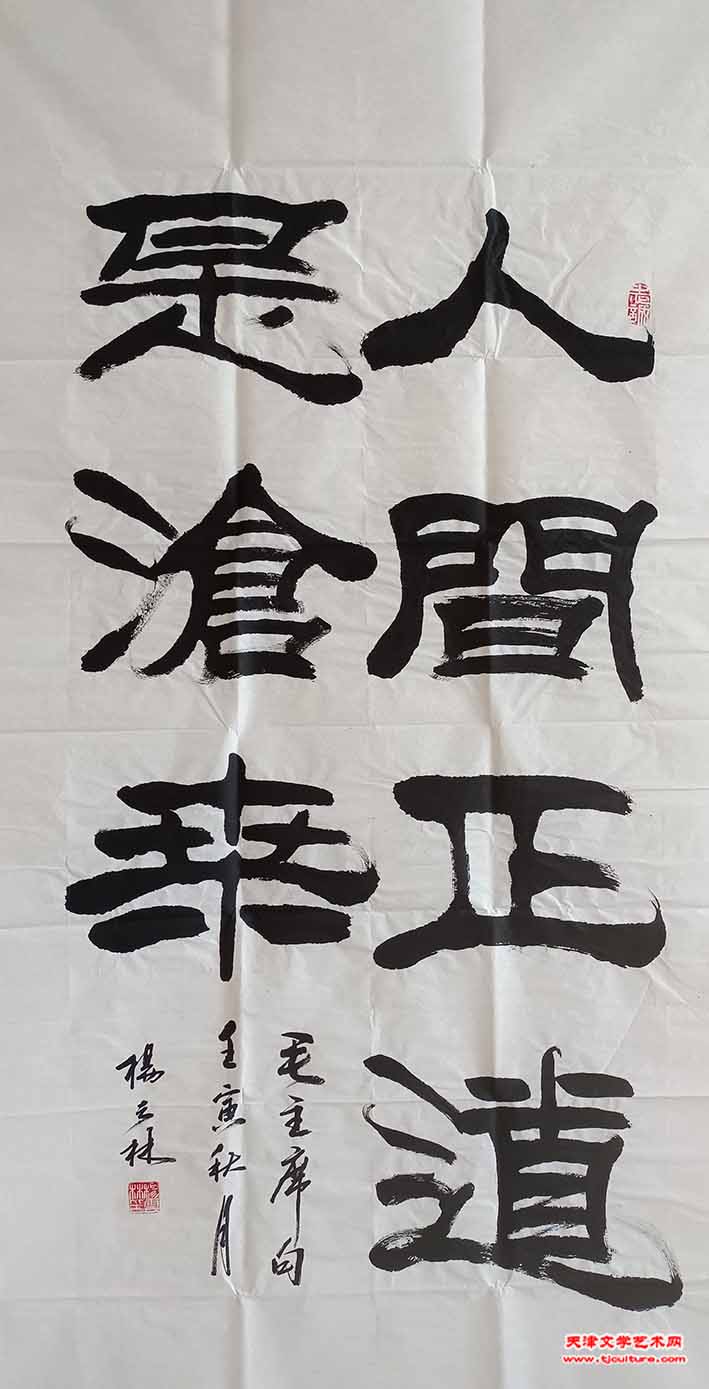 人間正道
是滄桒
毛主席句
壬寅秋月
楊 林
天津文学艺术网
www.tjculture.com